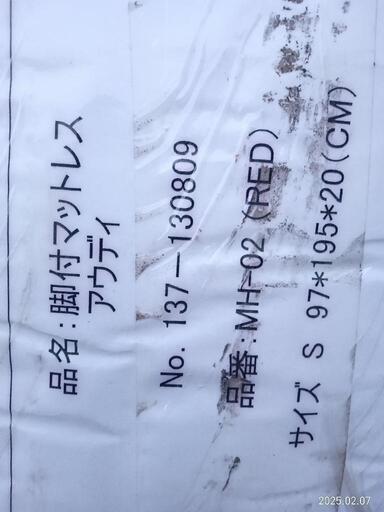 品名：脚付マットレス
アウディ
No. 137ー130809
品番：MH-02 (RED)
サイズ S 97*195*20(CM)
2025.02.07